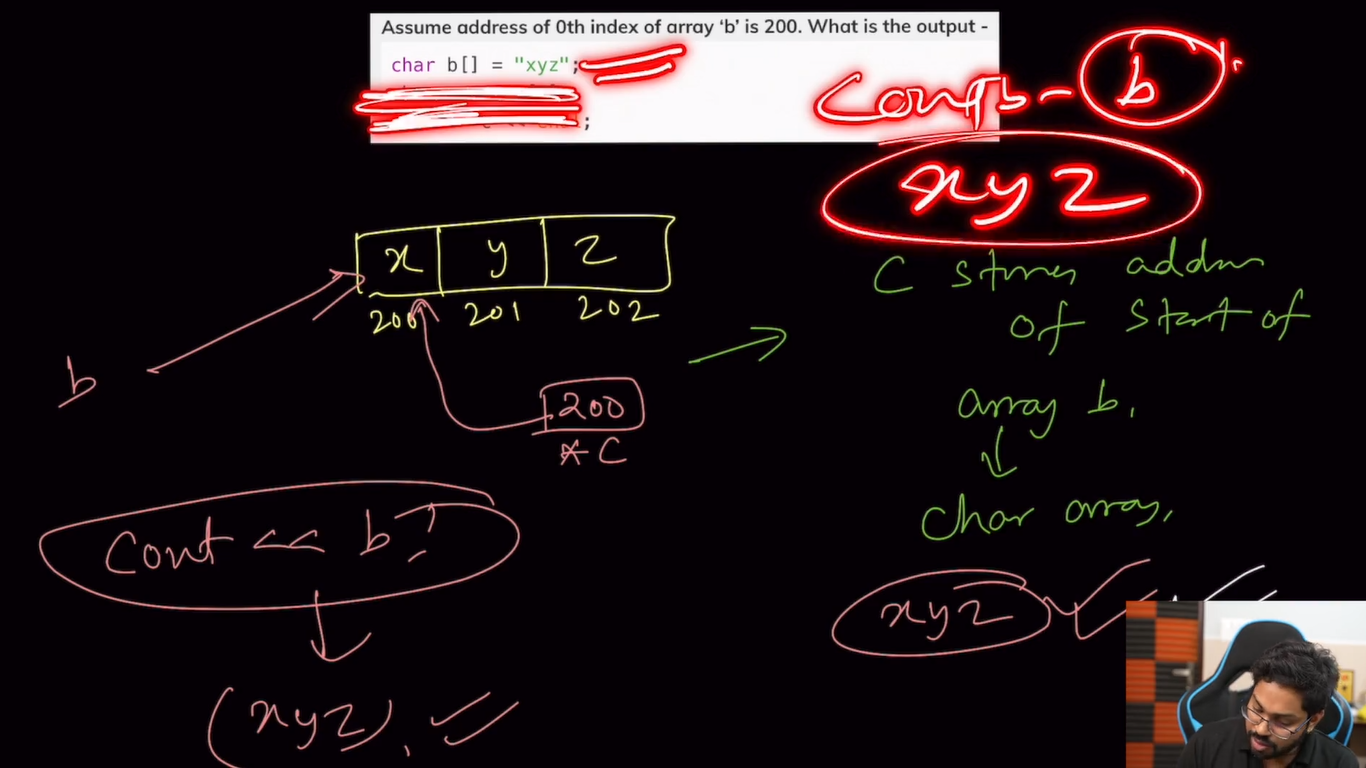 Assume address of 0th index of array ‘b’ is 200. What is the output -
char b[] = "xyz";
;
b
xyz
x y z
200 201 202
C stores
of start of
array b,
char array,
b
200
*C
cout << b?
xyz
(xyz),